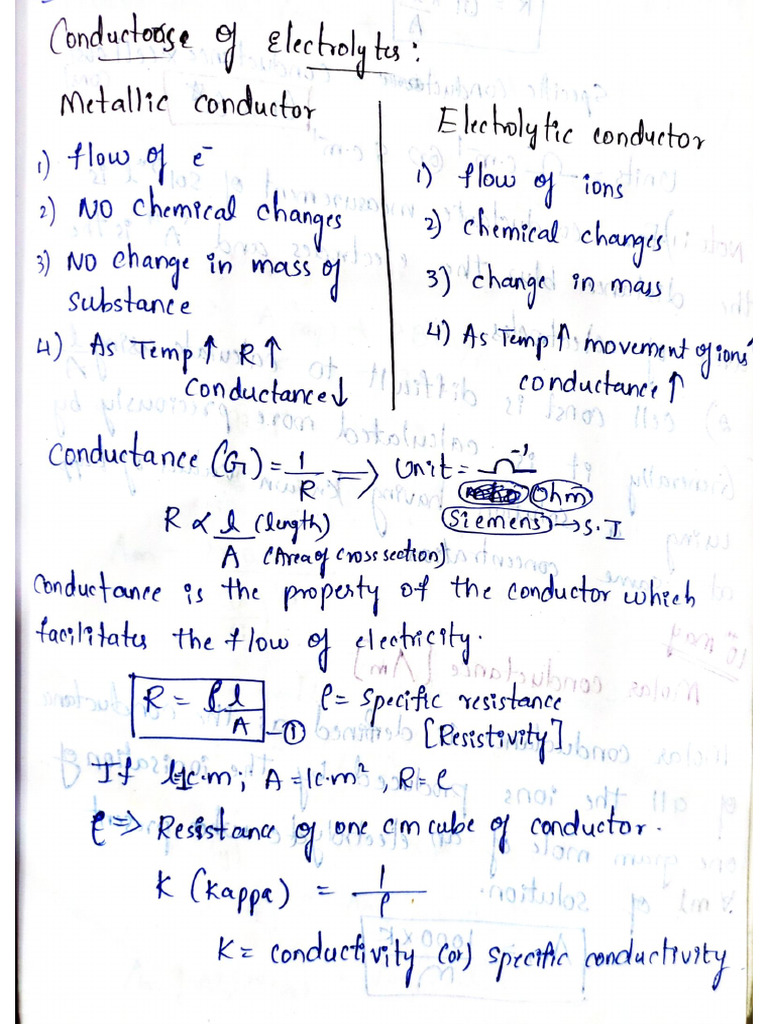 Conductance of Electrolytes:
Metallic conductor
1) flow of e⁻
2) NO chemical changes
3) NO change in mass of
substance
4) As Temp↑ R↑
conductance↓
Electrolytic conductor
1) flow of ions
2) chemical changes
3) change in mass
4) As Temp↑ movement of ions↑
conductance↑
Conductance (G) = 1/R ⇒ Unit = Ω⁻¹
Ohm
R ∝ l/A (length) (Area of cross section)
Siemens → S.I
conductance is the property of the conductor which
facilitates the flow of electricity.
R = ρ l/A -① ρ = specific resistance
[Resistivity]
If l=1c.m; A=1c.m², R=ρ
ρ ⇒ Resistance of one cm cube of conductor.
K (Kappa) = 1/ρ
K = conductivity (or) specific conductivity